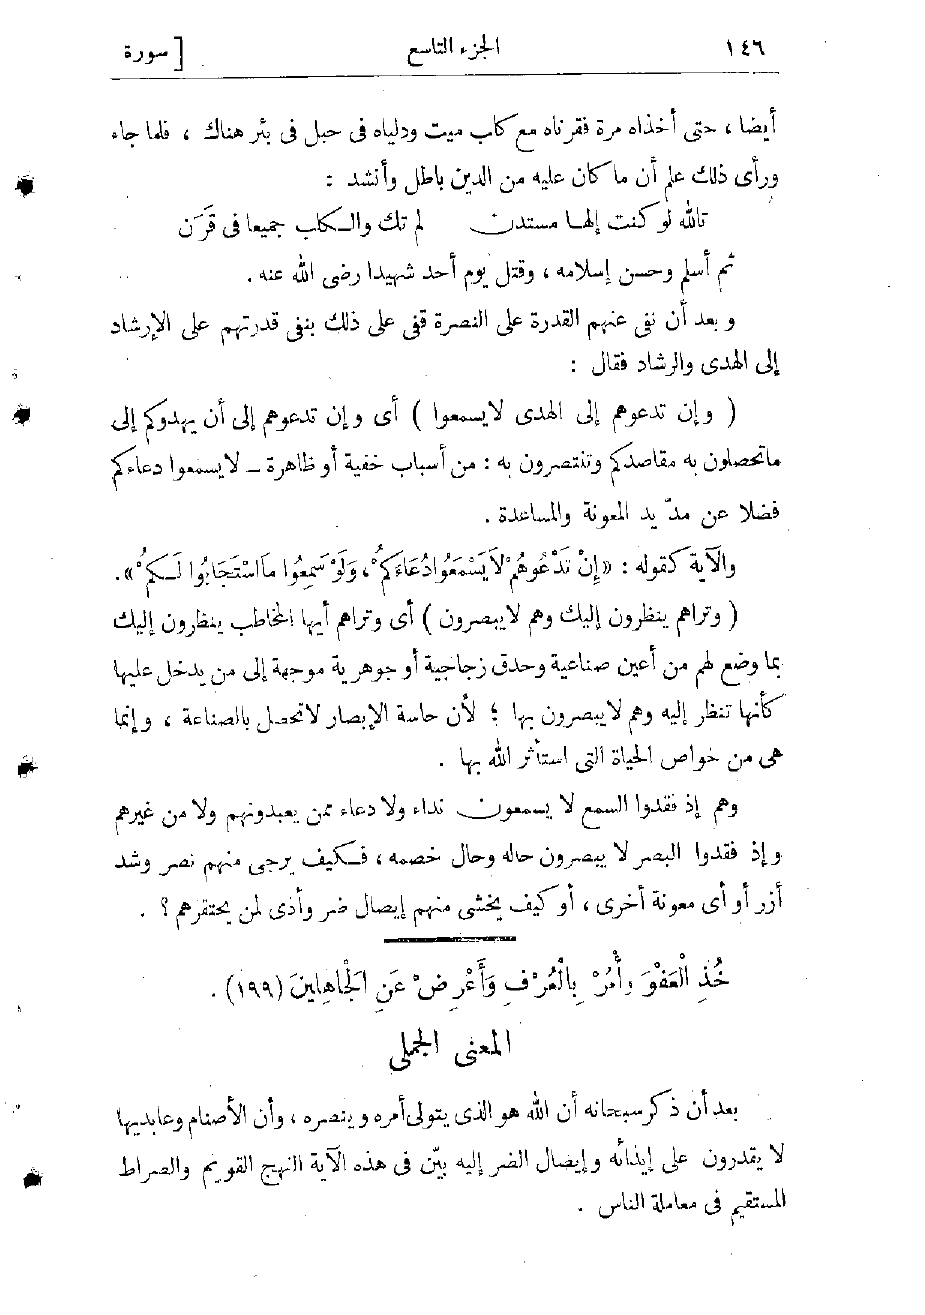 ١٤٦ الجزء التاسع [ سورة
أيضا ، حتى أخذاه مرة فقرناه مع كلب ميت ودلياه فى حبل فى بئر هناك ، فلما جاء
ورأى ذلك علم أن ما كان عليه من الدين باطل وأنشد :
تالله لو كنت إلها مستدن لم تك والكلب جميعا فى قَرَن
ثم أسلم وحسن إسلامه ، وقتل يوم أحد شهيدا رضى الله عنه .
وبعد أن نفى عنهم القدرة على النصرة قفى على ذلك بنفى قدرتهم على الإرشاد
إلى الهدى والرشاد فقال :
( وإن تدعوهم إلى الهدى لا يسمعوا ) أى وإن تدعوهم إلى أن يهدوكم إلى
ما تحصلون به مقاصدكم وتنتصرون به : من أسباب خفية أو ظاهرة – لا يسمعوا دعاءكم
فضلا عن مدّ يد المعونة والمساعدة .
والآية كقوله : «إِنْ تَدْعُوهُمْ لاَ يَسْمَعُوا دُعَاءَكُمْ ، وَلَوْ سَمِعُوا مَا اسْتَجَابُوا لَكُمْ» .
( وتراهم ينظرون إليك وهم لا يبصرون ) أى وتراهم أيها المخاطب ينظرون إليك
بما وضع لهم من أعين صناعية وحدق زجاجية أو جوهرية موجهة إلى من يدخل عليها
كأنها تنظر إليه وهم لا يبصرون بها ؛ لأن حاسة الإبصار لا تحصل بالصناعة ، وإنما
هى من خواص الحياة التى استأثر الله بها .
وهم إذ فقدوا السمع لا يسمعون نداء ولا دعاء ممن يعبدونهم ولا من غيرهم
وإذ فقدوا البصر لا يبصرون حاله وحال خصمه ، فكيف يرجى منهم نصر وشد
أزر أو أى معونة أخرى ، أو كيف يخشى منهم إيصال ضر وأذى لمن يحتقرهم ؟ .
خُذِ الْعَفْوَ وَأْمُرْ بِالْعُرْفِ وَأَعْرِضْ عَنِ الْجَاهِلِينَ (١٩٩) .
المعنى الجملى
بعد أن ذكر سبحانه أن الله هو الذى يتولى أمره وينصره ، وأن الأصنام وعابديها
لا يقدرون على إيذائه وإيصال الضر إليه بيّن فى هذه الآية النهج القويم والصراط
المستقيم فى معاملة الناس .